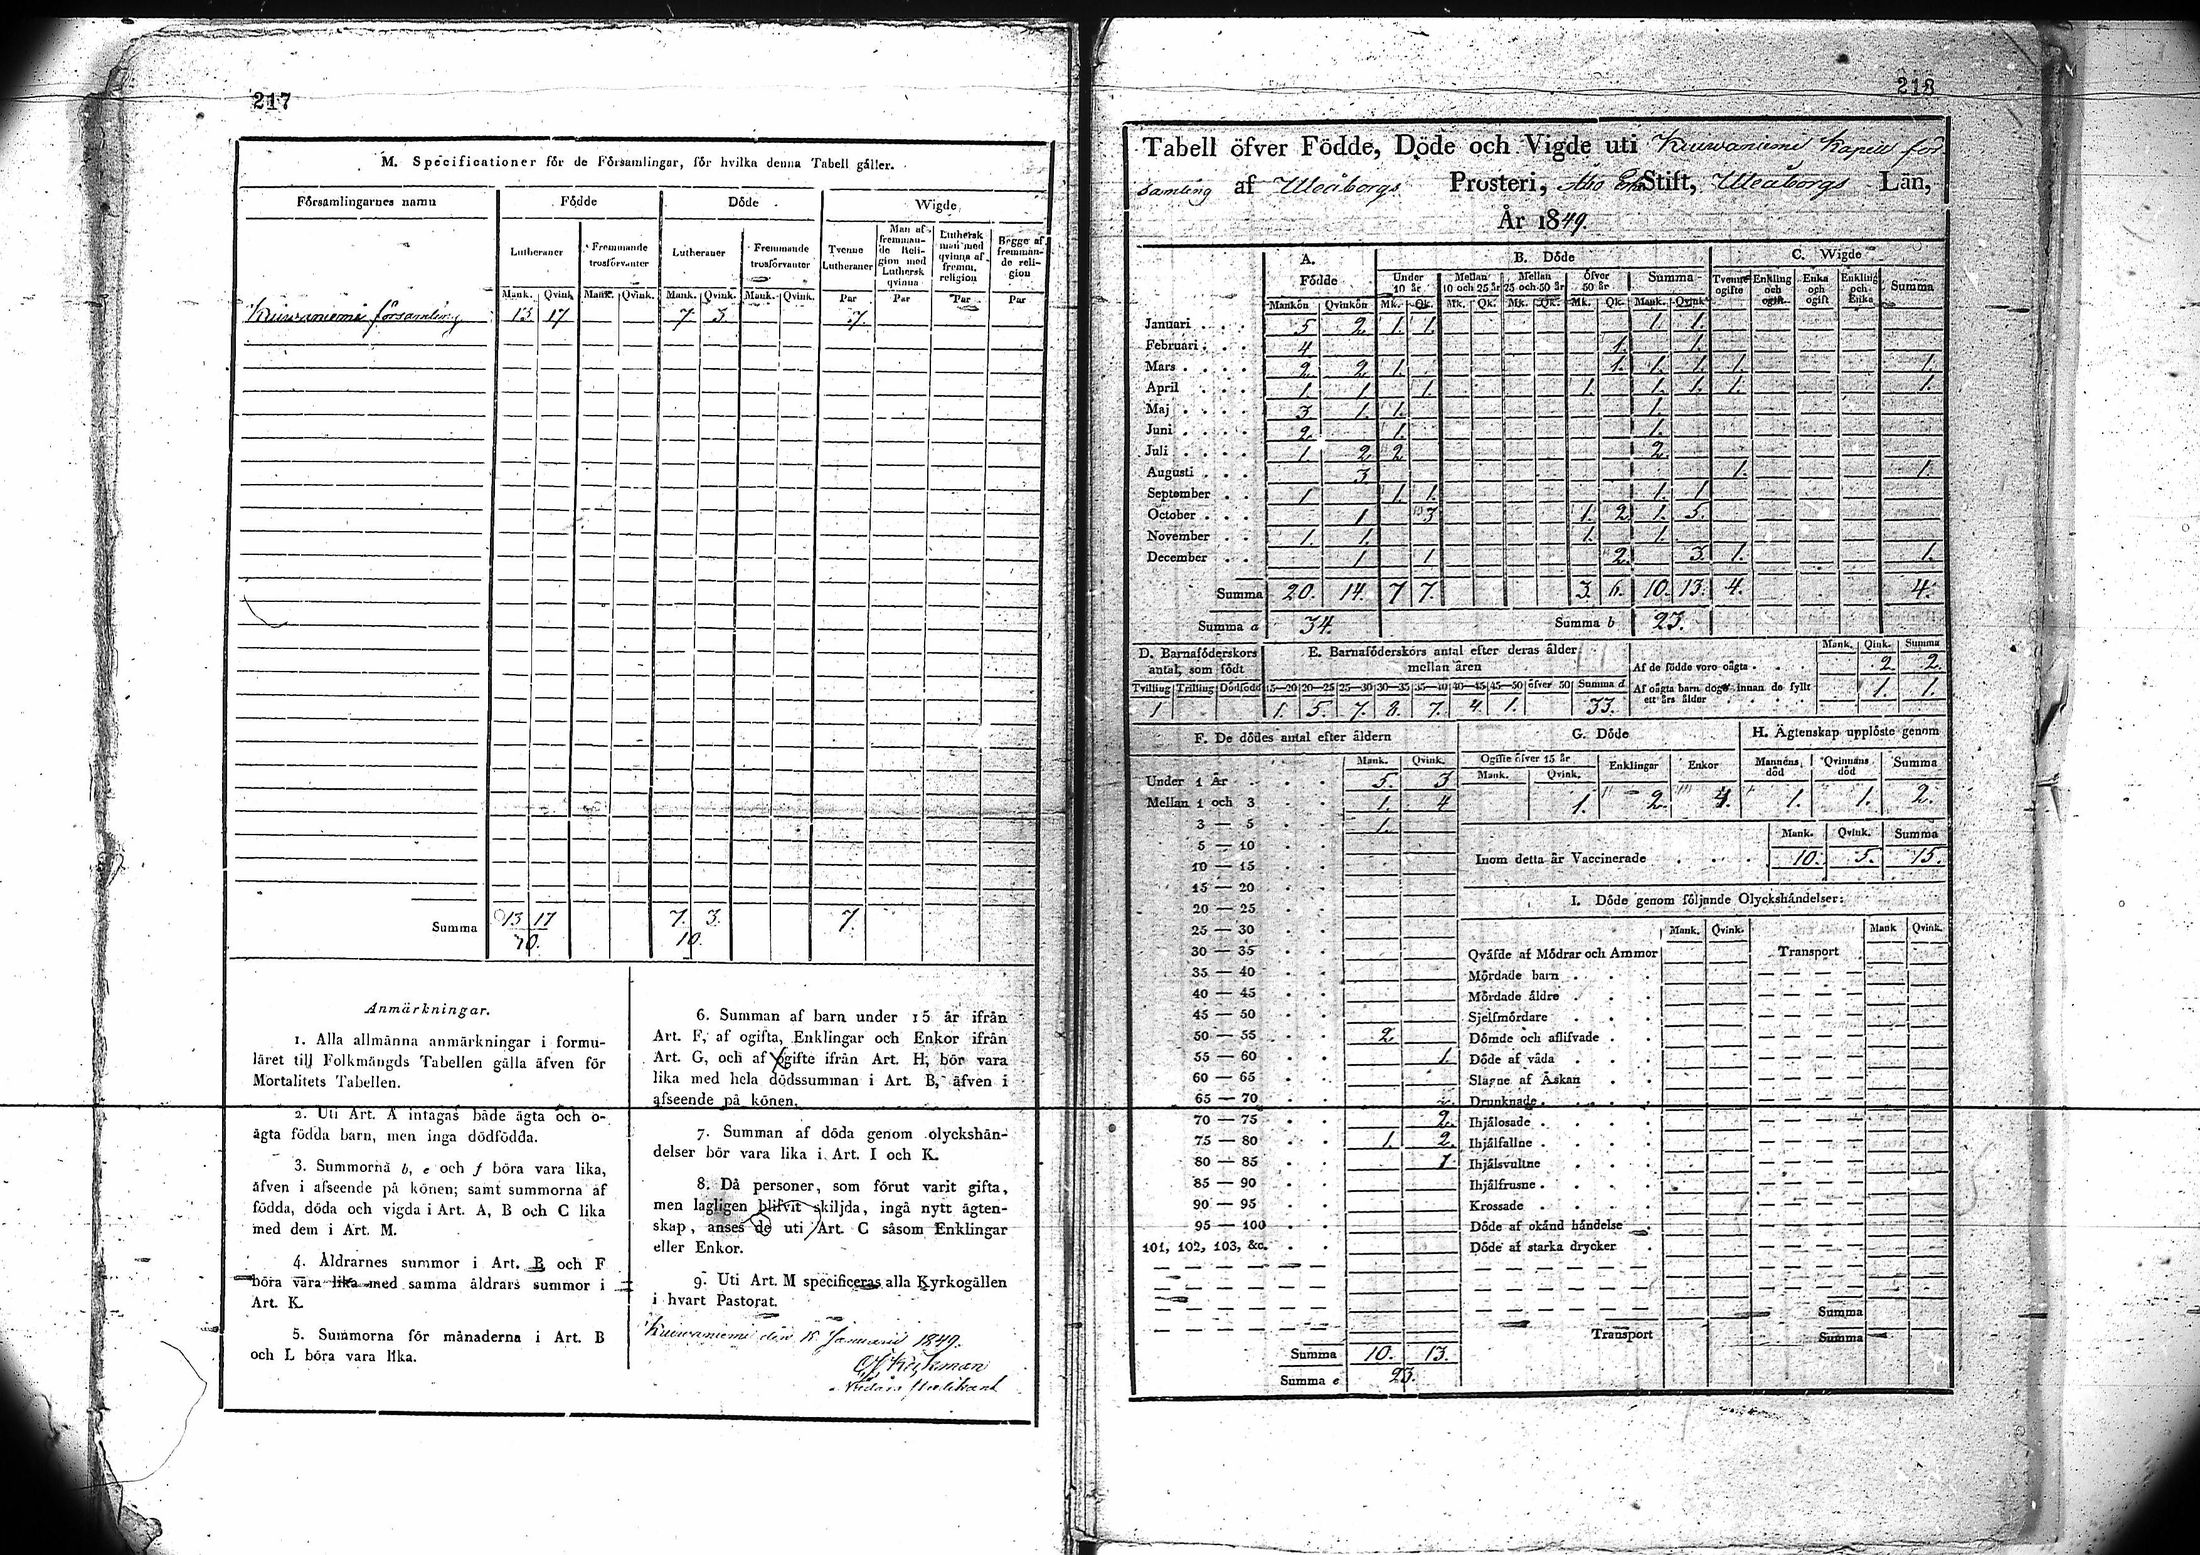 217
M. Specificationer för de Församlingar, för hvilka denna Tabell gäller.
Församlingarnes namn Födde Döde Wigde
Lutheraner Fremmande trosförvanter Lutheraner Fremmande trosförvanter Tvenne Lutheraner Man af fremmande Religion med Luthersk qvinna Luthersk man med qvinna af fremm. religion Begge af fremmande religion
Mank. Qvink. Mank. Qvink. Mank. Qvink. Mank. Qvink. Par Par Par Par
Kuiwaniemi församling 13 17 7. 3. 7.
Summa 13 17 7. 3. 7.
30. 10.
Anmärkningar.
1. Alla allmänna anmärkningar i formu-
läret till Folkmängds Tabellen gälla äfven för
Mortalitets Tabellen.
2. Uti Art. A intagas både ägta och o-
ägta födda barn, men inga dödfödda.
3. Summorna b, e och f böra vara lika,
äfven i afseende på könen; samt summorna af
födda, döda och vigda i Art. A, B och C lika
med dem i Art. M.
4. Åldrarnes summor i Art. B och F
böra vara lika med samma åldrars summor i
Art. K.
5. Summorna för månaderna i Art. B
och L böra vara lika.
6. Summan af barn under 15 år ifrån
Art. F, af ogifta, Enklingar och Enkor ifrån
Art. G, och af gifte ifrån Art. H, bör vara
lika med hela dödssumman i Art. B, äfven i
afseende på könen.
7. Summan af döda genom olyckshän-
delser bör vara lika i Art. I och K.
8. Då personer, som förut varit gifta,
men lagligen blifvit skiljda, ingå nytt ägten-
skap, anses de uti Art. C såsom Enklingar
eller Enkor.
9. Uti Art. M specificeras alla Kyrkogällen
i hvart Pastorat.
Kuiwaniemi den 15 Januarii 1849.
218
Tabell öfver Födde, Döde och Vigde uti Kuiwaniemi Kapell för
samling af Uleåborgs Prosteri, Åbo Erke Stift, Uleåborgs Län,
År 1849.
A. Födde B. Döde C. Wigde
Under 10 år Mellan 10 och 25 år Mellan 25 och 50 år Öfver 50 år Summa Tvenne ogifte Enkling och ogift Enka och ogift Enkling och Enka Summa
Mankön Qvinkön Mk. Qk. Mk. Qk. Mk. Qk. Mk. Qk. Mank. Qvink.
Januari 5 2 1. 1. 1. 1.
Februari 4. 1. 1.
Mars 2. 2 1. 1. 1. 1. 1. 1.
April 1. 1. 1. 1. 1. 1. 1. 1.
Maj 3 1. 1. 1.
Juni 2. 1. 1.
Juli 1. 2 2 2.
Augusti 3 1. 1.
September 1 1. 1. 1. 1
October 1 3 1. 2 1. 5.
November 1. 1. 1. 1.
December 1 1 2. 3. 1. 1.
Summa 20. 14. 7 7. 3. 6. 10. 13. 4. 4.
Summa a 34. Summa b 23.
D. Barnaföderskors antal, som födt
Tvilling Trilling Dödfödd
1
E. Barnaföderskors antal efter deras ålder mellan åren
15—20 20—25 25—30 30—35 35—40 40—45 45—50 öfver 50 Summa d
1. 5. 7. 8. 7. 4. 1. 33.
Mank. Qvink. Summa
Af de födde voro oägta 2. 2.
Af oägta barn dogo innan de fyllt ett års ålder 1. 1.
F. De dödes antal efter åldern
Mank. Qvink.
Under 1 År 5. 3
Mellan 1 och 3 1. 4
3 — 5 1.
5 — 10
10 — 15
15 — 20
20 — 25
25 — 30
30 — 35
35 — 40
40 — 45
45 — 50
50 — 55 2.
55 — 60 1.
60 — 65
65 — 70
70 — 75 2.
75 — 80 1. 2.
80 — 85 1
85 — 90
90 — 95
95 — 100
101, 102, 103, &c.
Summa 10. 13.
Summa e 23.
G. Döde
Ogifte öfver 15 år Enklingar Enkor
Mank. Qvink.
1. 2. 4.
H. Ägtenskap upplöste genom
Mannens död Qvinnans död Summa
1. 1. 2.
Mank. Qvink. Summa
Inom detta år Vaccinerade 10. 5. 15.
I. Döde genom följande Olyckshändelser:
Mank. Qvink. Mank Qvink.
Qväfde af Mödrar och Ammor Transport
Mördade barn
Mördade äldre
Sjelfmördare
Dömde och aflifvade
Döde af våda
Slagne af Åskan
Drunknade
Ihjälosade
Ihjälfallne
Ihjälsvultne
Ihjälfrusne
Krossade
Döde af okänd händelse
Döde af starka drycker
Summa
Transport Summa